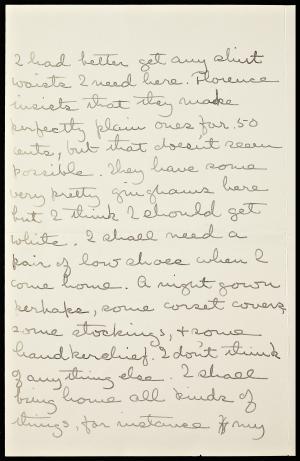 I had better get any shirt
waists I need here. Florence
insists that they make
perfectly plain ones for .50
cents, but that doesn't seem
possible. They have some
very pretty ginghams here
but I think I should get
white. I shall need a
pair of low shoes when I
come home. A night gown
perhaps, some corset covers,
some stockings, + some
handkerchief. I don't think
of anything else. I shall
bring home all kinds of
things, for instance my